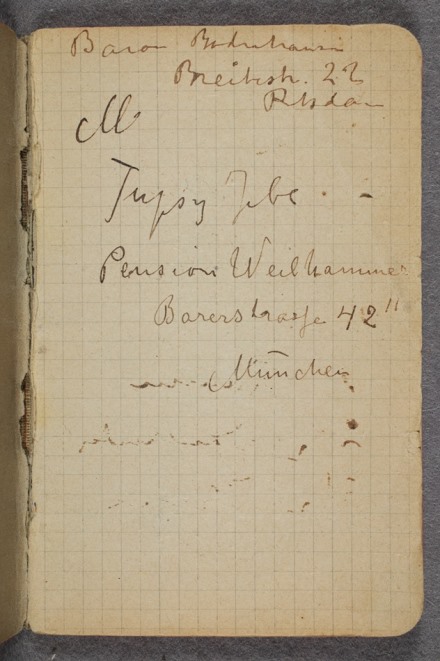 Baron Bodenhausen
Breitestr. 22
Potsdam
M
Tupsy Jebe
Pension Weilhammer
Barerstrasse 42 II
München